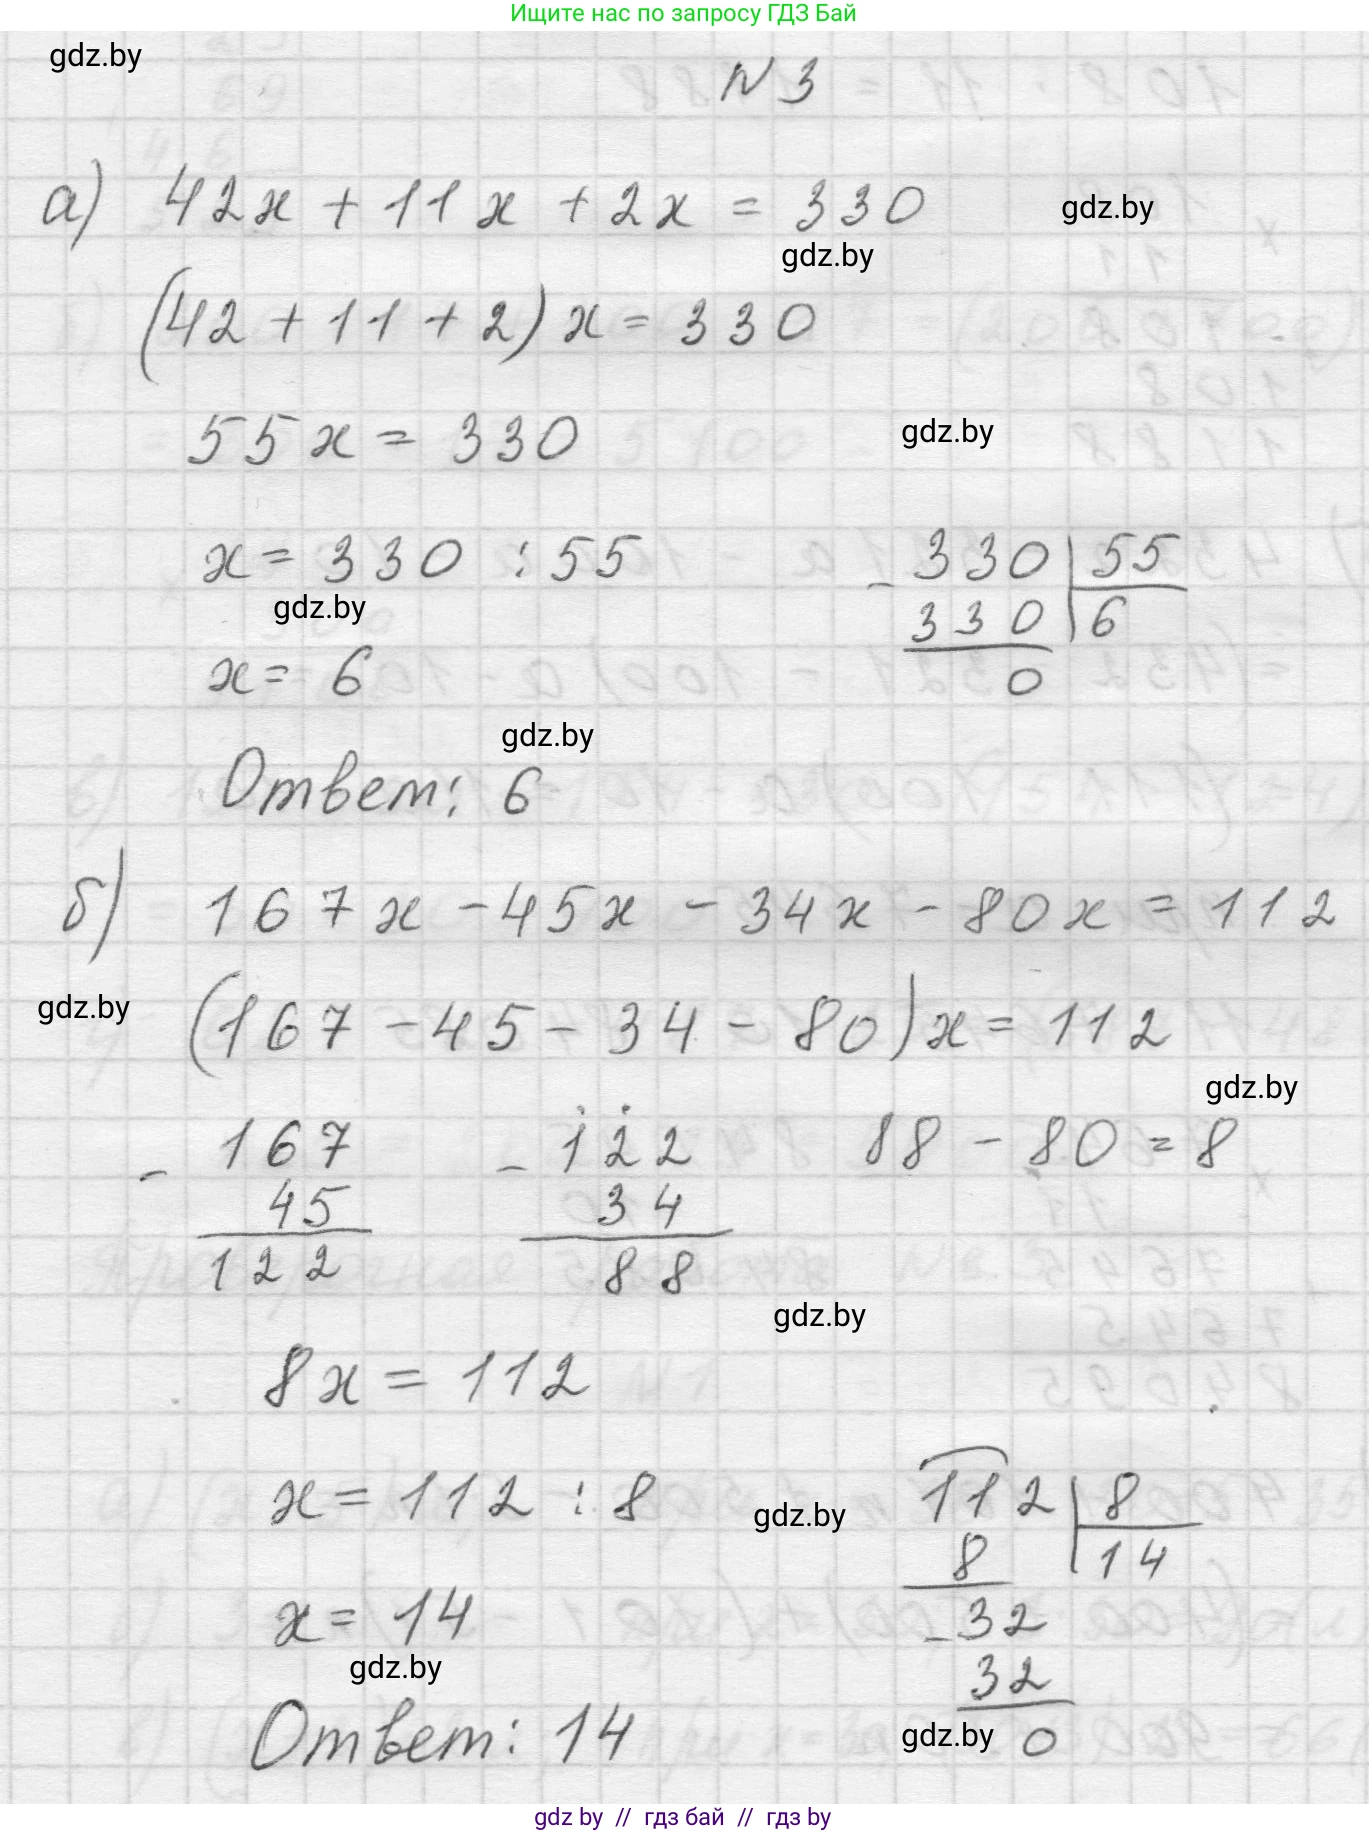 Ищите нас по запросу ГДЗ Бай
gdz.by
N 3
а) 42x + 11x + 2x = 330
gdz.by
gdz.by
(42 + 11 + 2) x = 330
55x = 330
gdz.by
x = 330 : 55
330 | 55
gdz.by
- 330 | 6
x = 6
0
gdz.by
Ответ: 6
б) 167x - 45x - 34x - 80x = 112
gdz.by
(167 - 45 - 34 - 80) x = 112
gdz.by
- 167 - 122 88 - 80 = 8
45 34
122 88
gdz.by
8x = 112
x = 112 : 8
gdz.by
112 | 8
8 | 14
x = 14
- 32
gdz.by
32
Ответ: 14
gdz.by
0
gdz by // гдз бай // гдз by